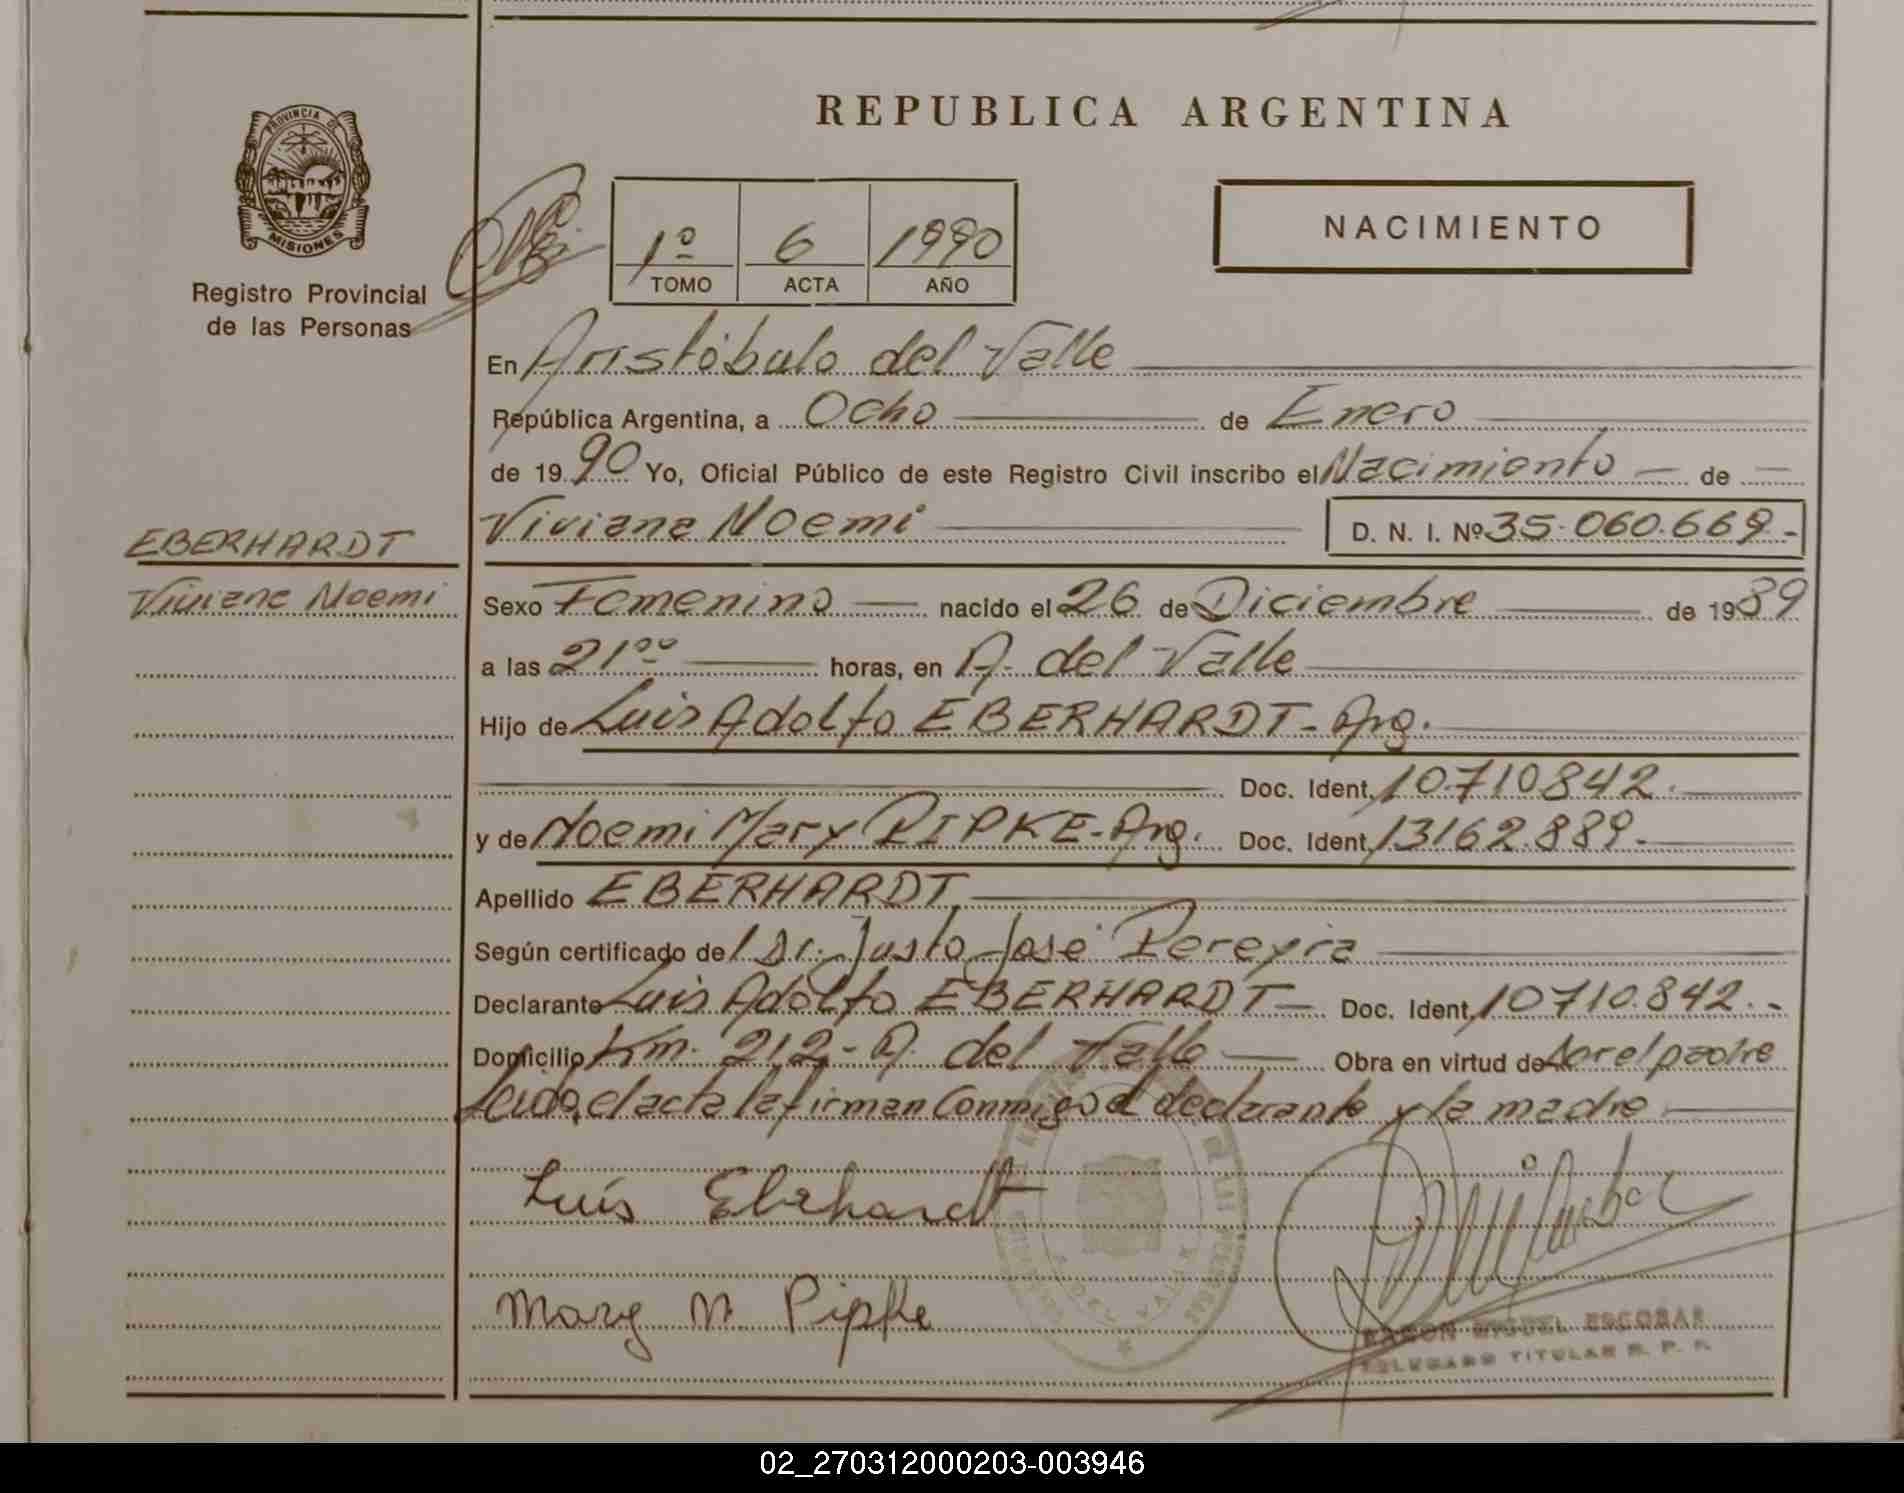 REPUBLICA ARGENTINA
PROVINCIA DE
MISIONES
Registro Provincial
de las Personas
1º 6 1990
TOMO ACTA AÑO
NACIMIENTO
En Aristóbulo del Valle
República Argentina, a Ocho de Enero
de 1990 Yo, Oficial Público de este Registro Civil inscribo el Nacimiento de
Viviana Noemi D. N. I. Nº 35.060.669.-
EBERHARDT
Viviana Noemi
Sexo Femenino nacido el 26 de Diciembre de 1989
a las 21ºº horas, en A. del Valle
Hijo de Luis Adolfo EBERHARDT - Arg.
Doc. Ident. 10710842.
y de Noemi Mary PIPKE - Arg. Doc. Ident. 13162.889.-
Apellido EBERHARDT
Según certificado del Dr. Justo José Pereyra
Declarante Luis Adolfo EBERHARDT Doc. Ident. 10710.842.-
Domicilio Km. 212 - A. del Valle Obra en virtud de ser el padre
Leída el acta la firman conmigo el declarante y la madre
Luis Eberhardt
Mary N. Pipke
A. DEL VALLE
RAMON MIGUEL ESCOBAR
DELEGADO TITULAR R. P. P.
02_270312000203-003946